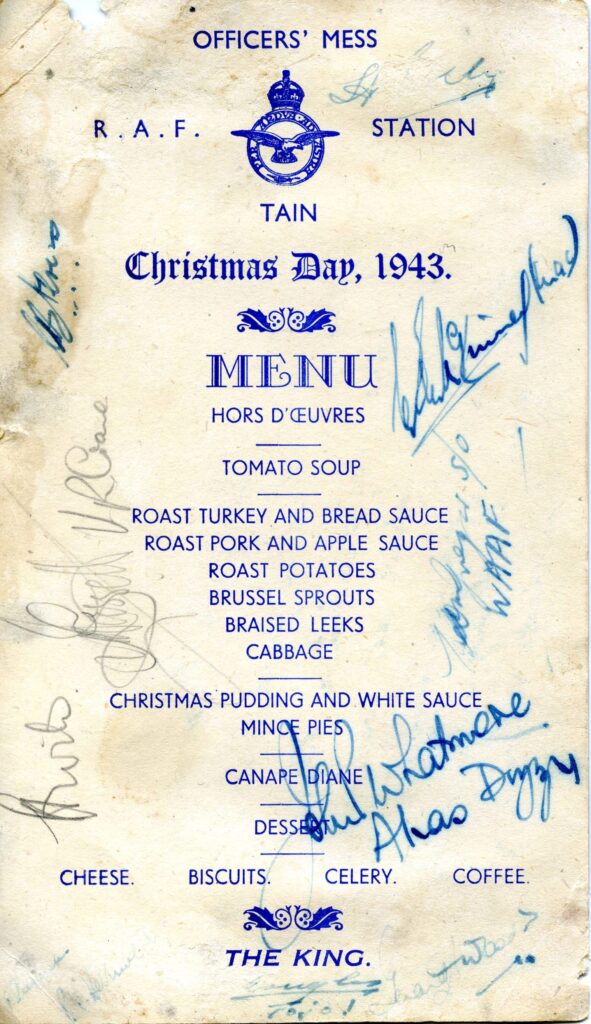 OFFICERS' MESS
R.A.F. STATION
PER ARDVA AD ASTRA
TAIN
Christmas Day, 1943.
MENU
HORS D'ŒUVRES
TOMATO SOUP
ROAST TURKEY AND BREAD SAUCE
ROAST PORK AND APPLE SAUCE
ROAST POTATOES
BRUSSEL SPROUTS
BRAISED LEEKS
CABBAGE
CHRISTMAS PUDDING AND WHITE SAUCE
MINCE PIES
CANAPE DIANE
DESSERT
CHEESE. BISCUITS. CELERY. COFFEE.
THE KING.
V R Crane
S/O
WAAF
Whatmore
Alias Dizzy
Jojo!